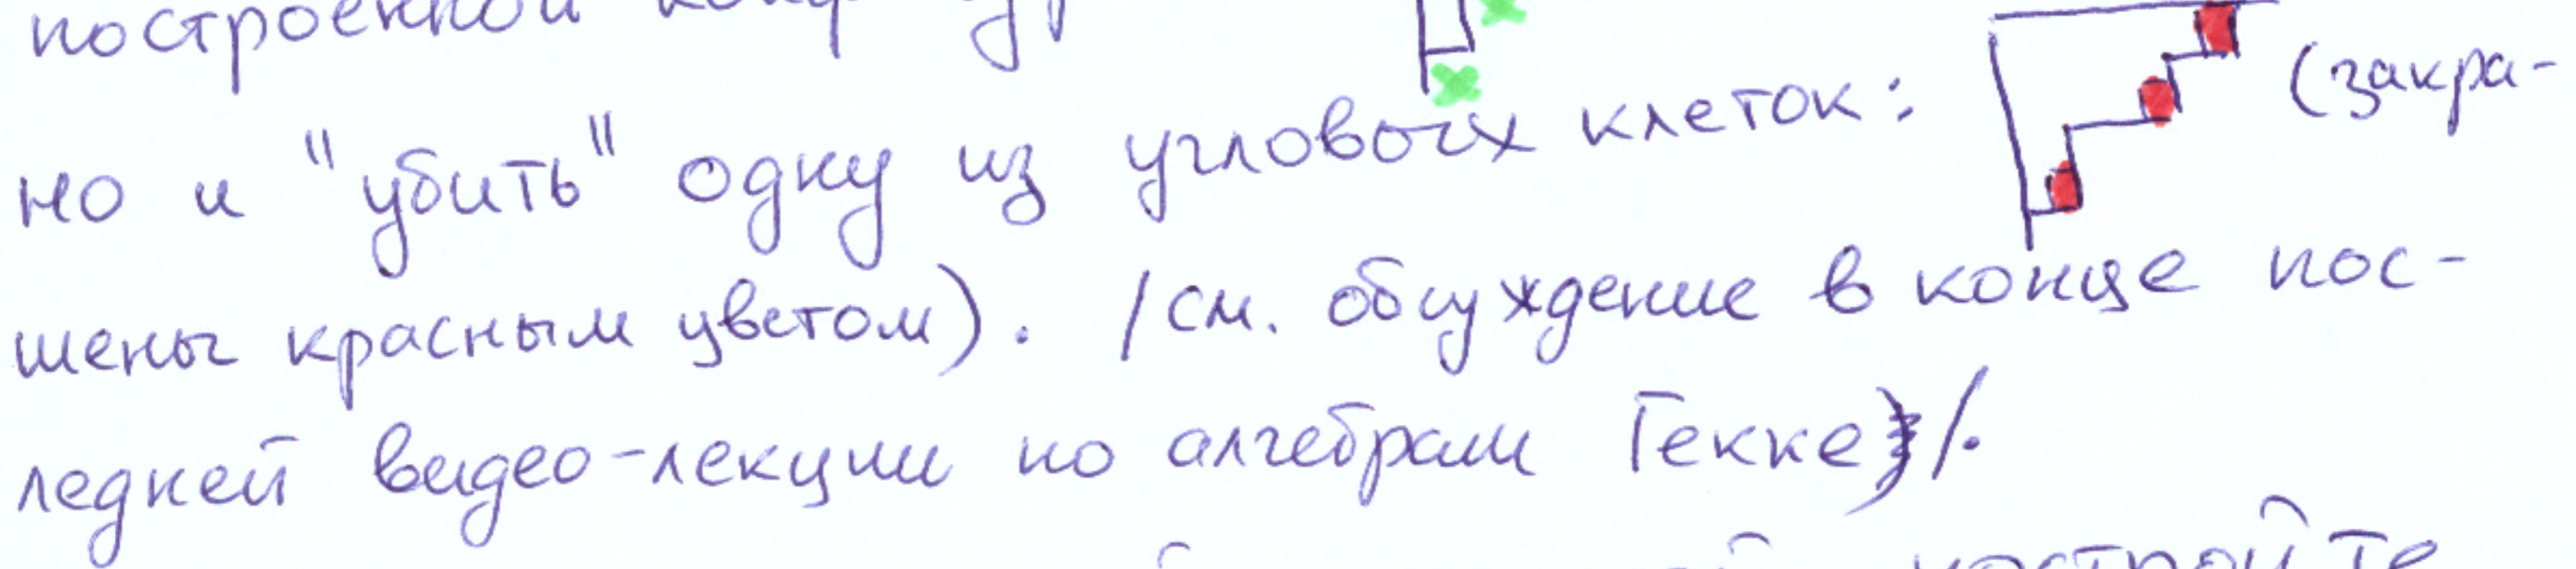 построенной
но и "убить" одну из угловых клеток: (закра-
шены красным цветом). /см. обсуждение в конце пос-
ледней видео-лекции по алгебрам Гекке/.
постройте